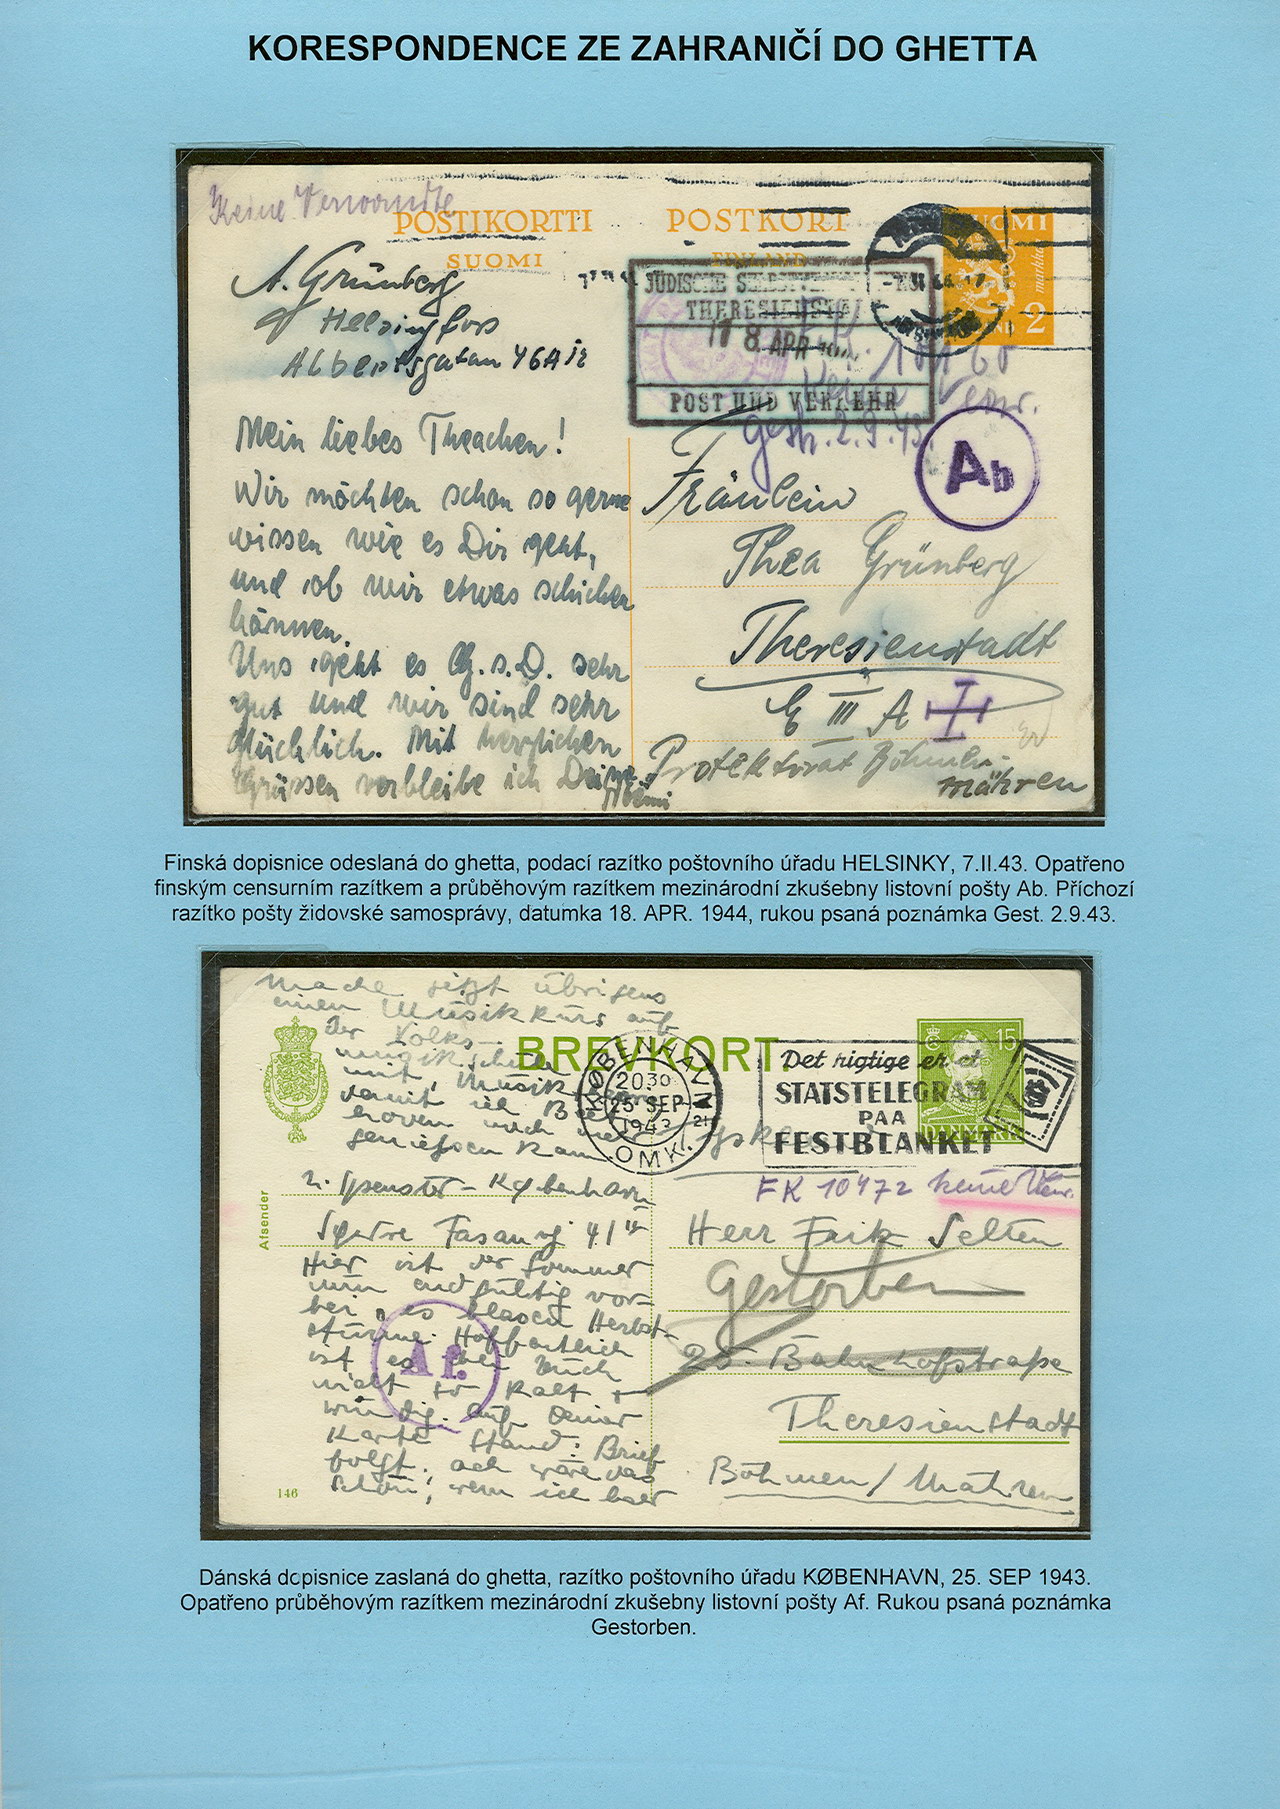 KORESPONDENCE ZE ZAHRANIČÍ DO GHETTA
Keine Verwandte
POSTIKORTTI POSTKORT
SUOMI FINLAND
SUOMI
2
A. Grünberg
Helsingfors
Albertsgatan 46A
JÜDISCHE
THERESIENSTADT
18. APR.
POST UND VERKEHR
Gest. 2.9.43
Ab
Mein liebes Theachen!
Wir möchten schon so gerne
wissen wie es Dir geht,
und ob wir etwas schicken
können.
Uns geht es G.s.D. sehr
gut und wir sind sehr
glücklich. Mit herzlichen
Grüssen verbleibe ich Deine
Fräulein
Thea Grünberg
Theresienstadt
E III A
Protektorat Böhmen-
mähren
Finská dopisnice odeslaná do ghetta, podací razítko poštovního úřadu HELSINKY, 7.II.43. Opatřeno
finským censurním razítkem a průběhovým razítkem mezinárodní zkušebny listovní pošty Ab. Příchozí
razítko pošty židovské samosprávy, datumka 18. APR. 1944, rukou psaná poznámka Gest. 2.9.43.
mache jetzt übrigens
einen Musikkurs auf
der Volks-
BREVKORT
KØBENHAVN
2030
25 SEP
1943
OMK.
Det rigtige er et
STATSTELEGRAM
PAA
FESTBLANKET
15
DANMARK
Afsender
København
Fasanvej 41
Hier ist der Sommer
nun endgültig vor-
bei, es blasen Herbst-
stürme. Hoffentlich
ist es bei Euch
nicht so kalt +
windig. Auf Deiner
Karte stand: Brief
folgt, ach wäre das
schön, wenn ich
Af.
146
FK 10472 keine Verw.
Herr Erik Selten
Gestorben
25. Bahnhofstraße
Theresienstadt
Böhmen/Mähren
Dánská dopisnice zaslaná do ghetta, razítko poštovního úřadu KØBENHAVN, 25. SEP 1943.
Opatřeno průběhovým razítkem mezinárodní zkušebny listovní pošty Af. Rukou psaná poznámka
Gestorben.